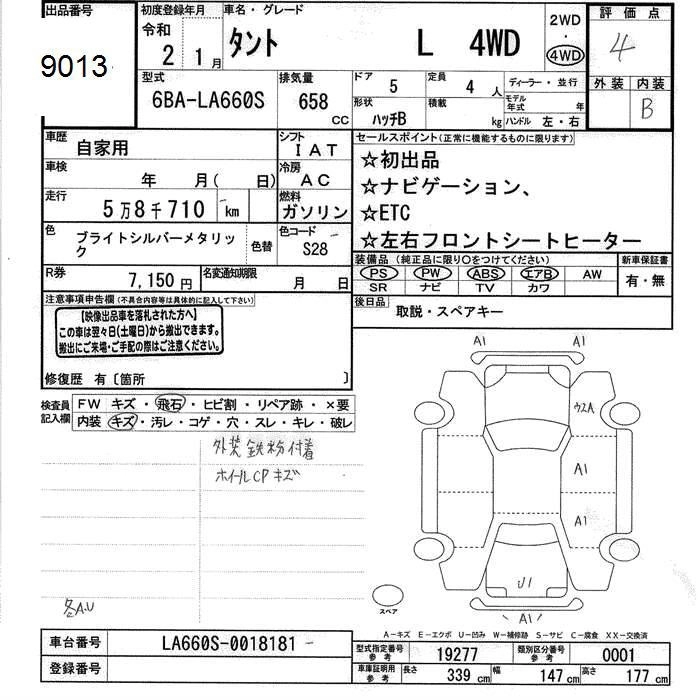 出品番号
9013
初度登録年月
令和
2年 1月
車名・グレード
タント L 4WD
2WD
・
4WD
評価点
4
外装 内装
B
型式
6BA-LA660S
排気量
658
CC
ドア 5
定員 4人
ディーラー・並行
形状 ハッチB
積載 kg
モデル年式 年
ハンドル 左・右
車歴
自家用
シフト
IAT
車検
年 月( 日)
冷房
AC
走行
5万8千710 km
燃料
ガソリン
色
ブライトシルバーメタリック
色替
色コード
S28
R券
7,150円
名変通知期限
月 日
セールスポイント(正常に機能するものに限ります)
☆初出品
☆ナビゲーション、
☆ETC
☆左右フロントシートヒーター
装備品(純正品に限り○をつけてください)
PS PW ABS エアB AW
SR ナビ TV カワ
新車保証書
有・無
後日品
取説・スペアキー
注意事項申告欄(不具合内容等は具体的に記入して下さい)
【映像出品車を落札された方へ】
この車は翌々日(土曜日)から搬出できます。
搬出にご来場・ご手配の際はご注意ください。
修復歴 有〔箇所 〕
検査員
記入欄
FW キズ・飛石・ヒビ割・リペア跡・×要
内装 キズ・汚レ・コゲ・穴・スレ・キレ・破レ
外装 鉄粉付着
ホイールCPキズ
各A.U
A1 A1
ウスA
A1
A1
U1
A1
スペア
A-キズ E-エクボ U-凹み W-補修跡 S-サビ C-腐食 XX-交換済
車台番号
LA660S-0018181
登録番号
型式指定番号
参考
19277
類別区分番号
参考
0001
車庫証明用
参考
長さ 339 cm
幅 147 cm
高さ 177 cm